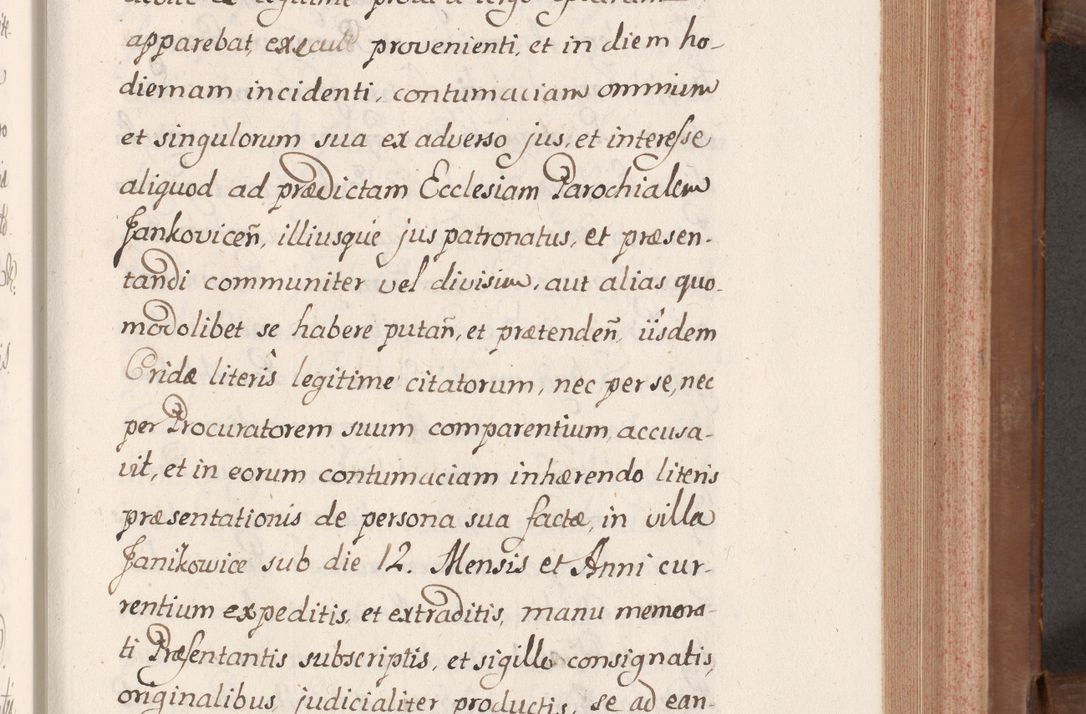 apparebat, executæ provenienti, et in diem ho-
diernam incidenti, contumaciam omnium
et singulorum sua ex adverso jus, et interesse
aliquod ad prædictam Ecclesiam Parochialem
Jankoviceñ, illiusque jus patronatus, et præsen-
tandi communiter vel divisim, aut alias quo-
modolibet se habere putañ, et prætendeñ, iisdem
Cridæ literis legitime citatorum, nec per se, nec
per Procuratorem suum comparentium accusa-
vit, et in eorum contumaciam inhærendo literis
præsentationis de persona sua factæ, in villa
Janikowice sub die 12. Mensis et Anni cur-
rentium expeditis, et extraditis, manu memora-
ti Præsentantis subscriptis, et sigillo consignatis,
originalibus, judicialiter productis, se ad ean-